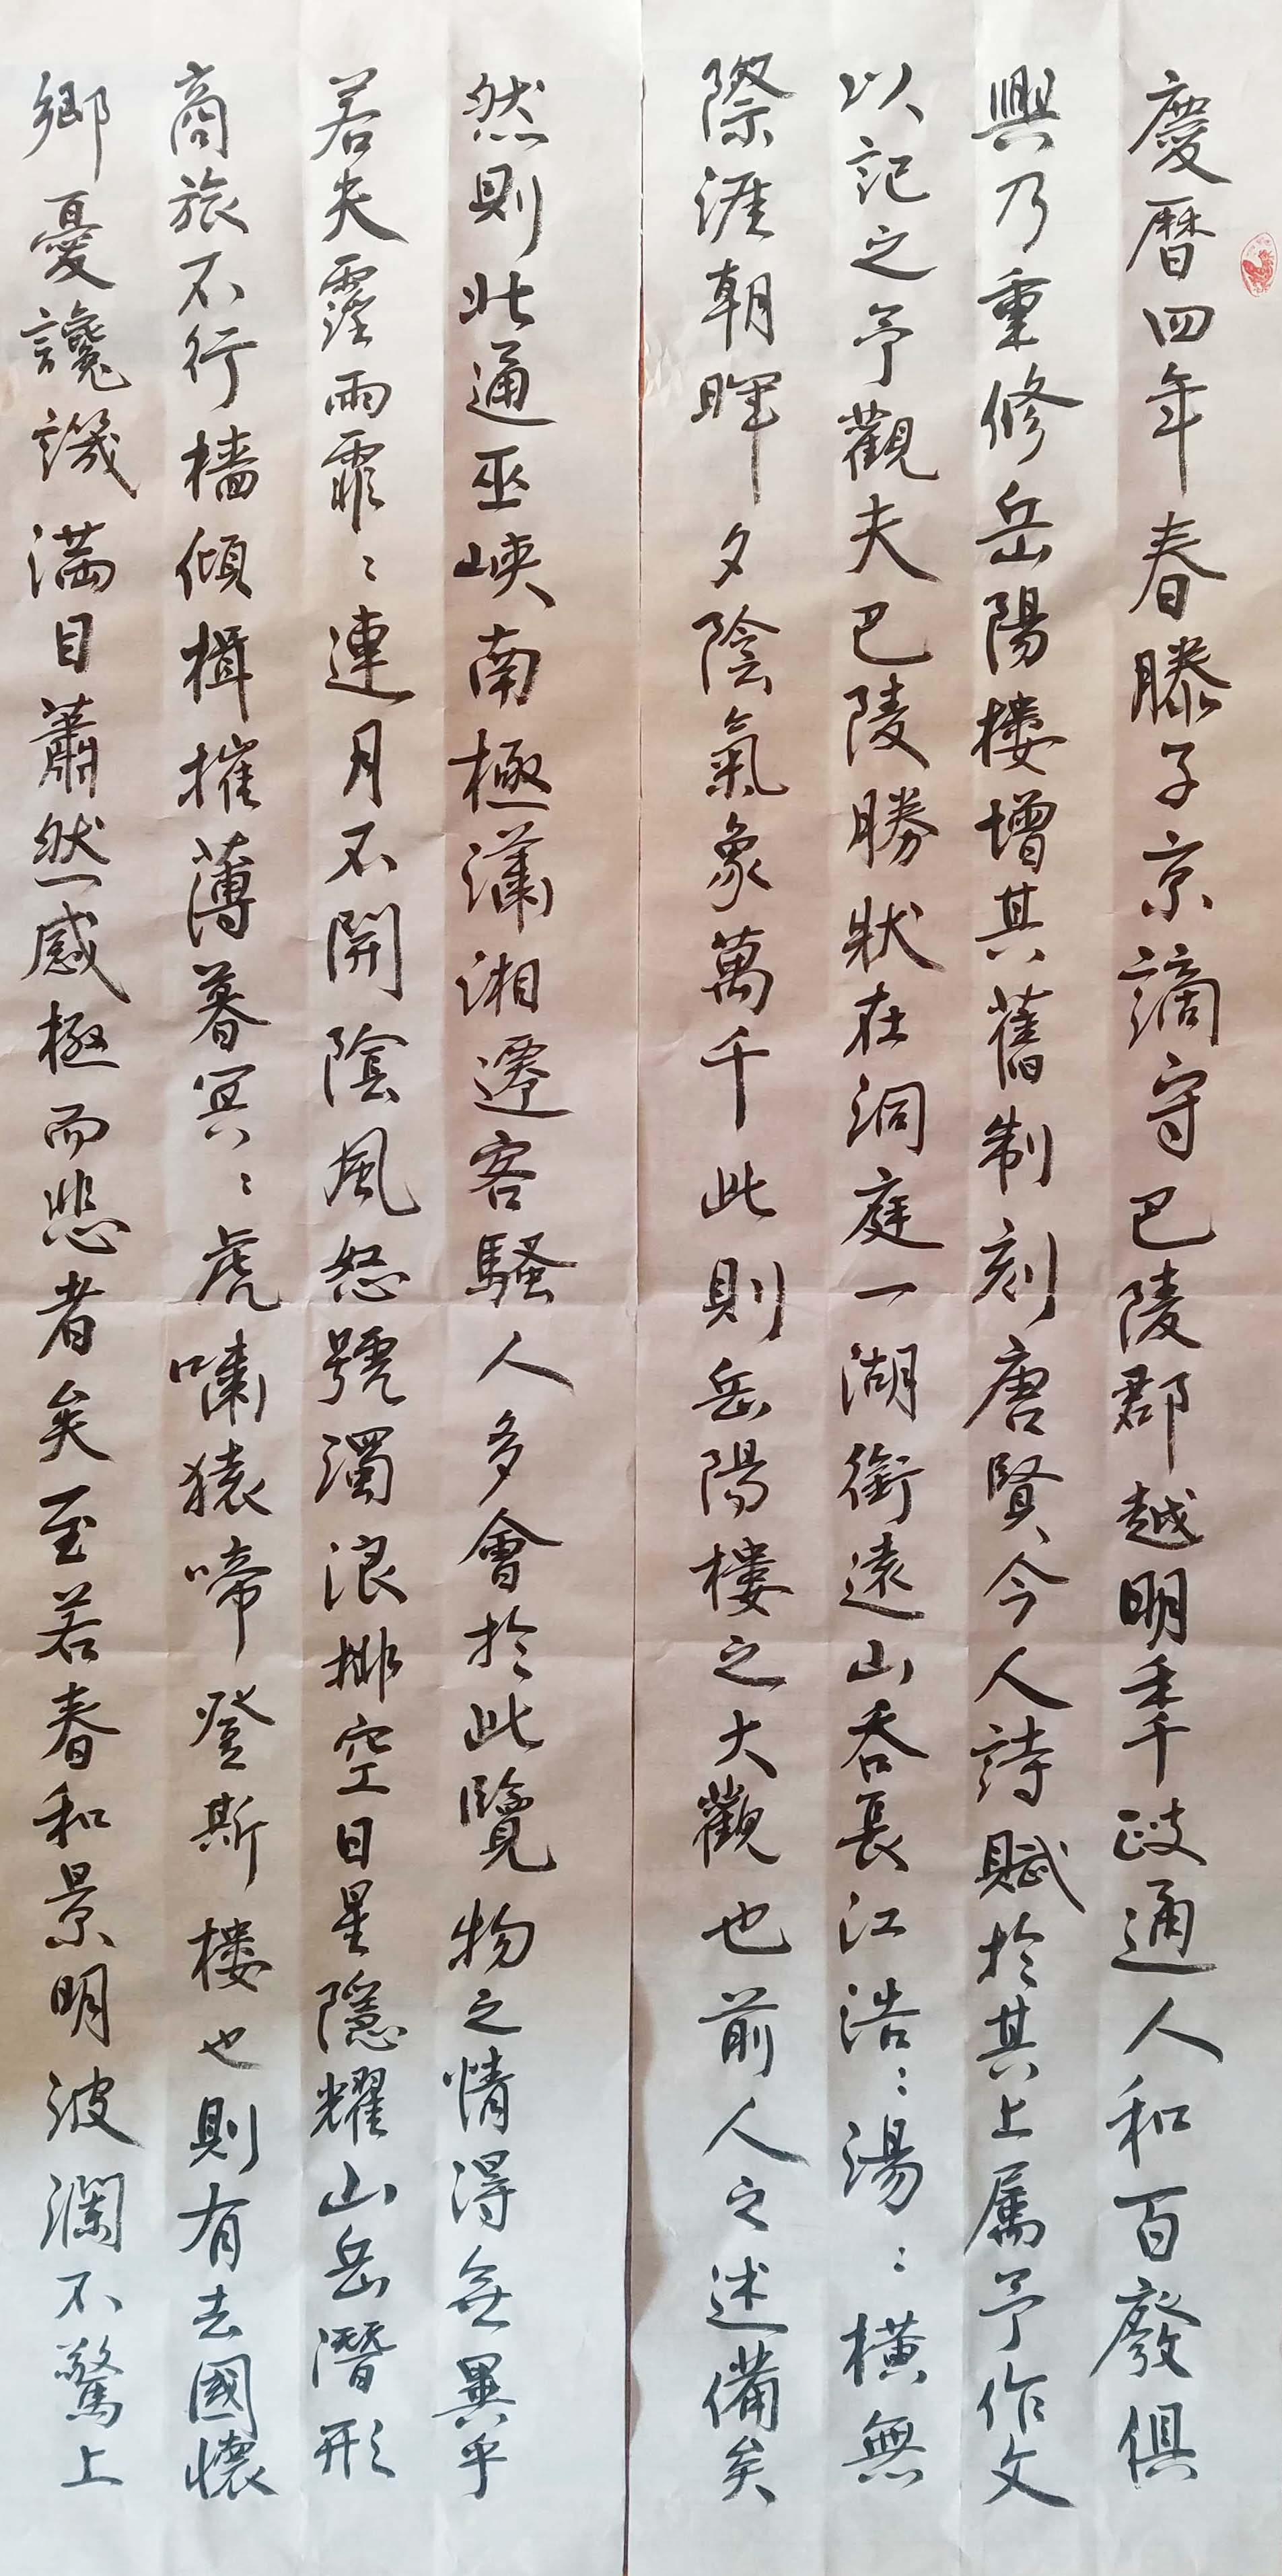 慶曆四年春滕子京謫守巴陵郡越明年政通人和百廢俱
興乃重修岳陽樓增其舊制刻唐賢今人詩賦於其上屬予作文
以記之予觀夫巴陵勝狀在洞庭一湖銜遠山吞長江浩〻湯〻橫無
際涯朝暉夕陰氣象萬千此則岳陽樓之大觀也前人之述備矣
然則北通巫峽南極瀟湘遷客騷人多會於此覽物之情得無異乎
若夫霪雨霏〻連月不開陰風怒號濁浪排空日星隱耀山岳潛形
商旅不行檣傾楫摧薄暮冥〻虎嘯猿啼登斯樓也則有去國懷
鄉憂讒譏滿目蕭然感極而悲者矣至若春和景明波瀾不驚上